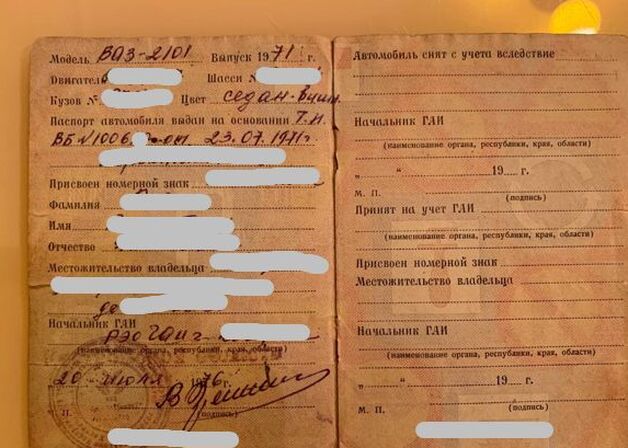 Модель ВАЗ-2101 Выпуск 1971 г.
Двигатель Шасси №
Кузов № Цвет седан-вишн.
Паспорт автомобиля выдан на основании Т.И.
ВБ №1006 от 23.07.1971г
Присвоен номерной знак
Фамилия
Имя
Отчество
Местожительство владельца
Начальник ГАИ
РЭО ГАИ г
(наименование органа, республики, края, области)
20 июля 1976г.
(подпись)
П.
Автомобиль снят с учета вследствие
Начальник ГАИ
(наименование органа, республики, края, области)
„ “ 19 г.
М. П. (подпись)
Принят на учет ГАИ
(наименование органа, республики, края, области)
Присвоен номерной знак
Местожительство владельца
Начальник ГАИ
(наименование органа, республики, края, области)
„ “ 19 г.
М. П. (подпись)